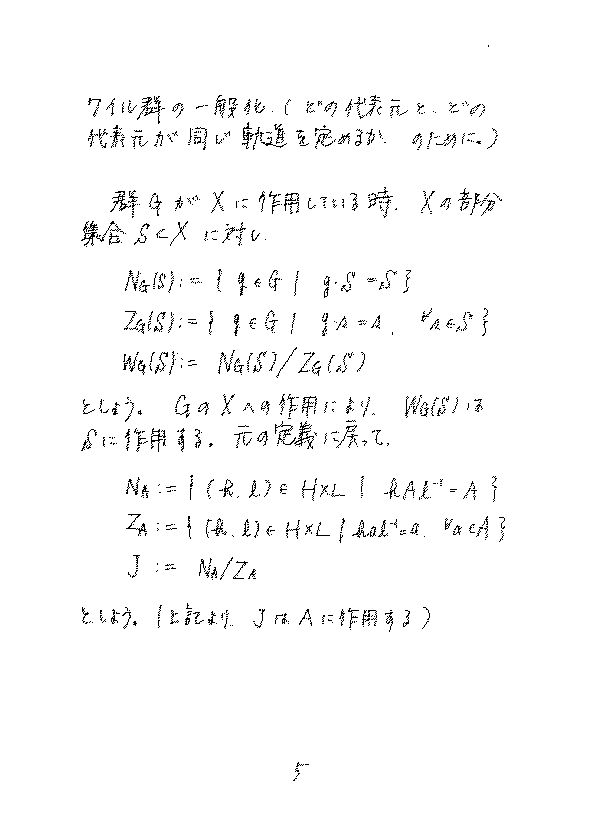 ワイル群の一般化.(どの代表元と、どの
代表元が同じ軌道を定めるか のために。)
群 G が X に作用している時、 X の部分
集合 S⊂X に対し
N_G(S):= { g∈G | g·S=S }
Z_G(S):= { g∈G | g·s=s, ∀s∈S }
W_G(S):= N_G(S)/Z_G(S)
としよう。 G の X への作用により、 W_G(S) は
S に作用する。 元の定義に戻って、
N_A := { (h, l) ∈ H×L | hAl⁻¹=A }
Z_A := { (h, l) ∈ H×L | hal⁻¹=a, ∀a∈A }
J := N_A/Z_A
としよう。(上記より、 J は A に作用する)
5